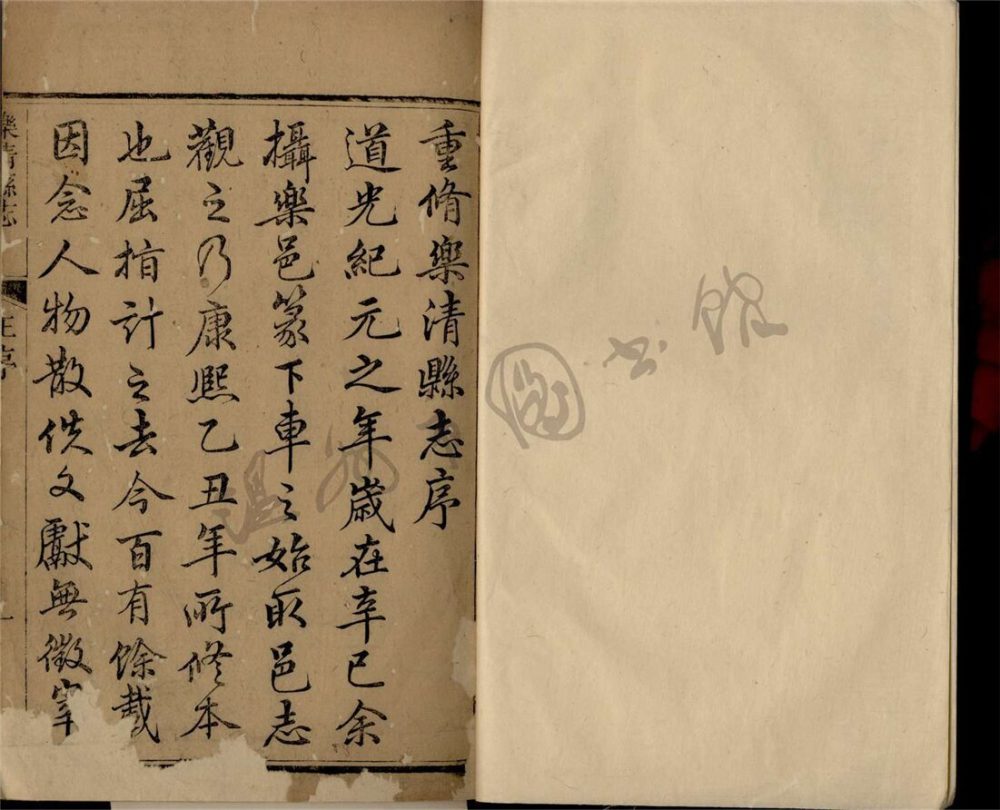 重脩樂清縣志序
道光紀元之年歲在辛巳余
攝樂邑篆下車之始取邑志
觀之乃康熙乙丑年所修本
也屈指計之去今百有餘載
因念人物散佚文獻無徵宰
樂清縣志
王序
一
溫州
圖书館